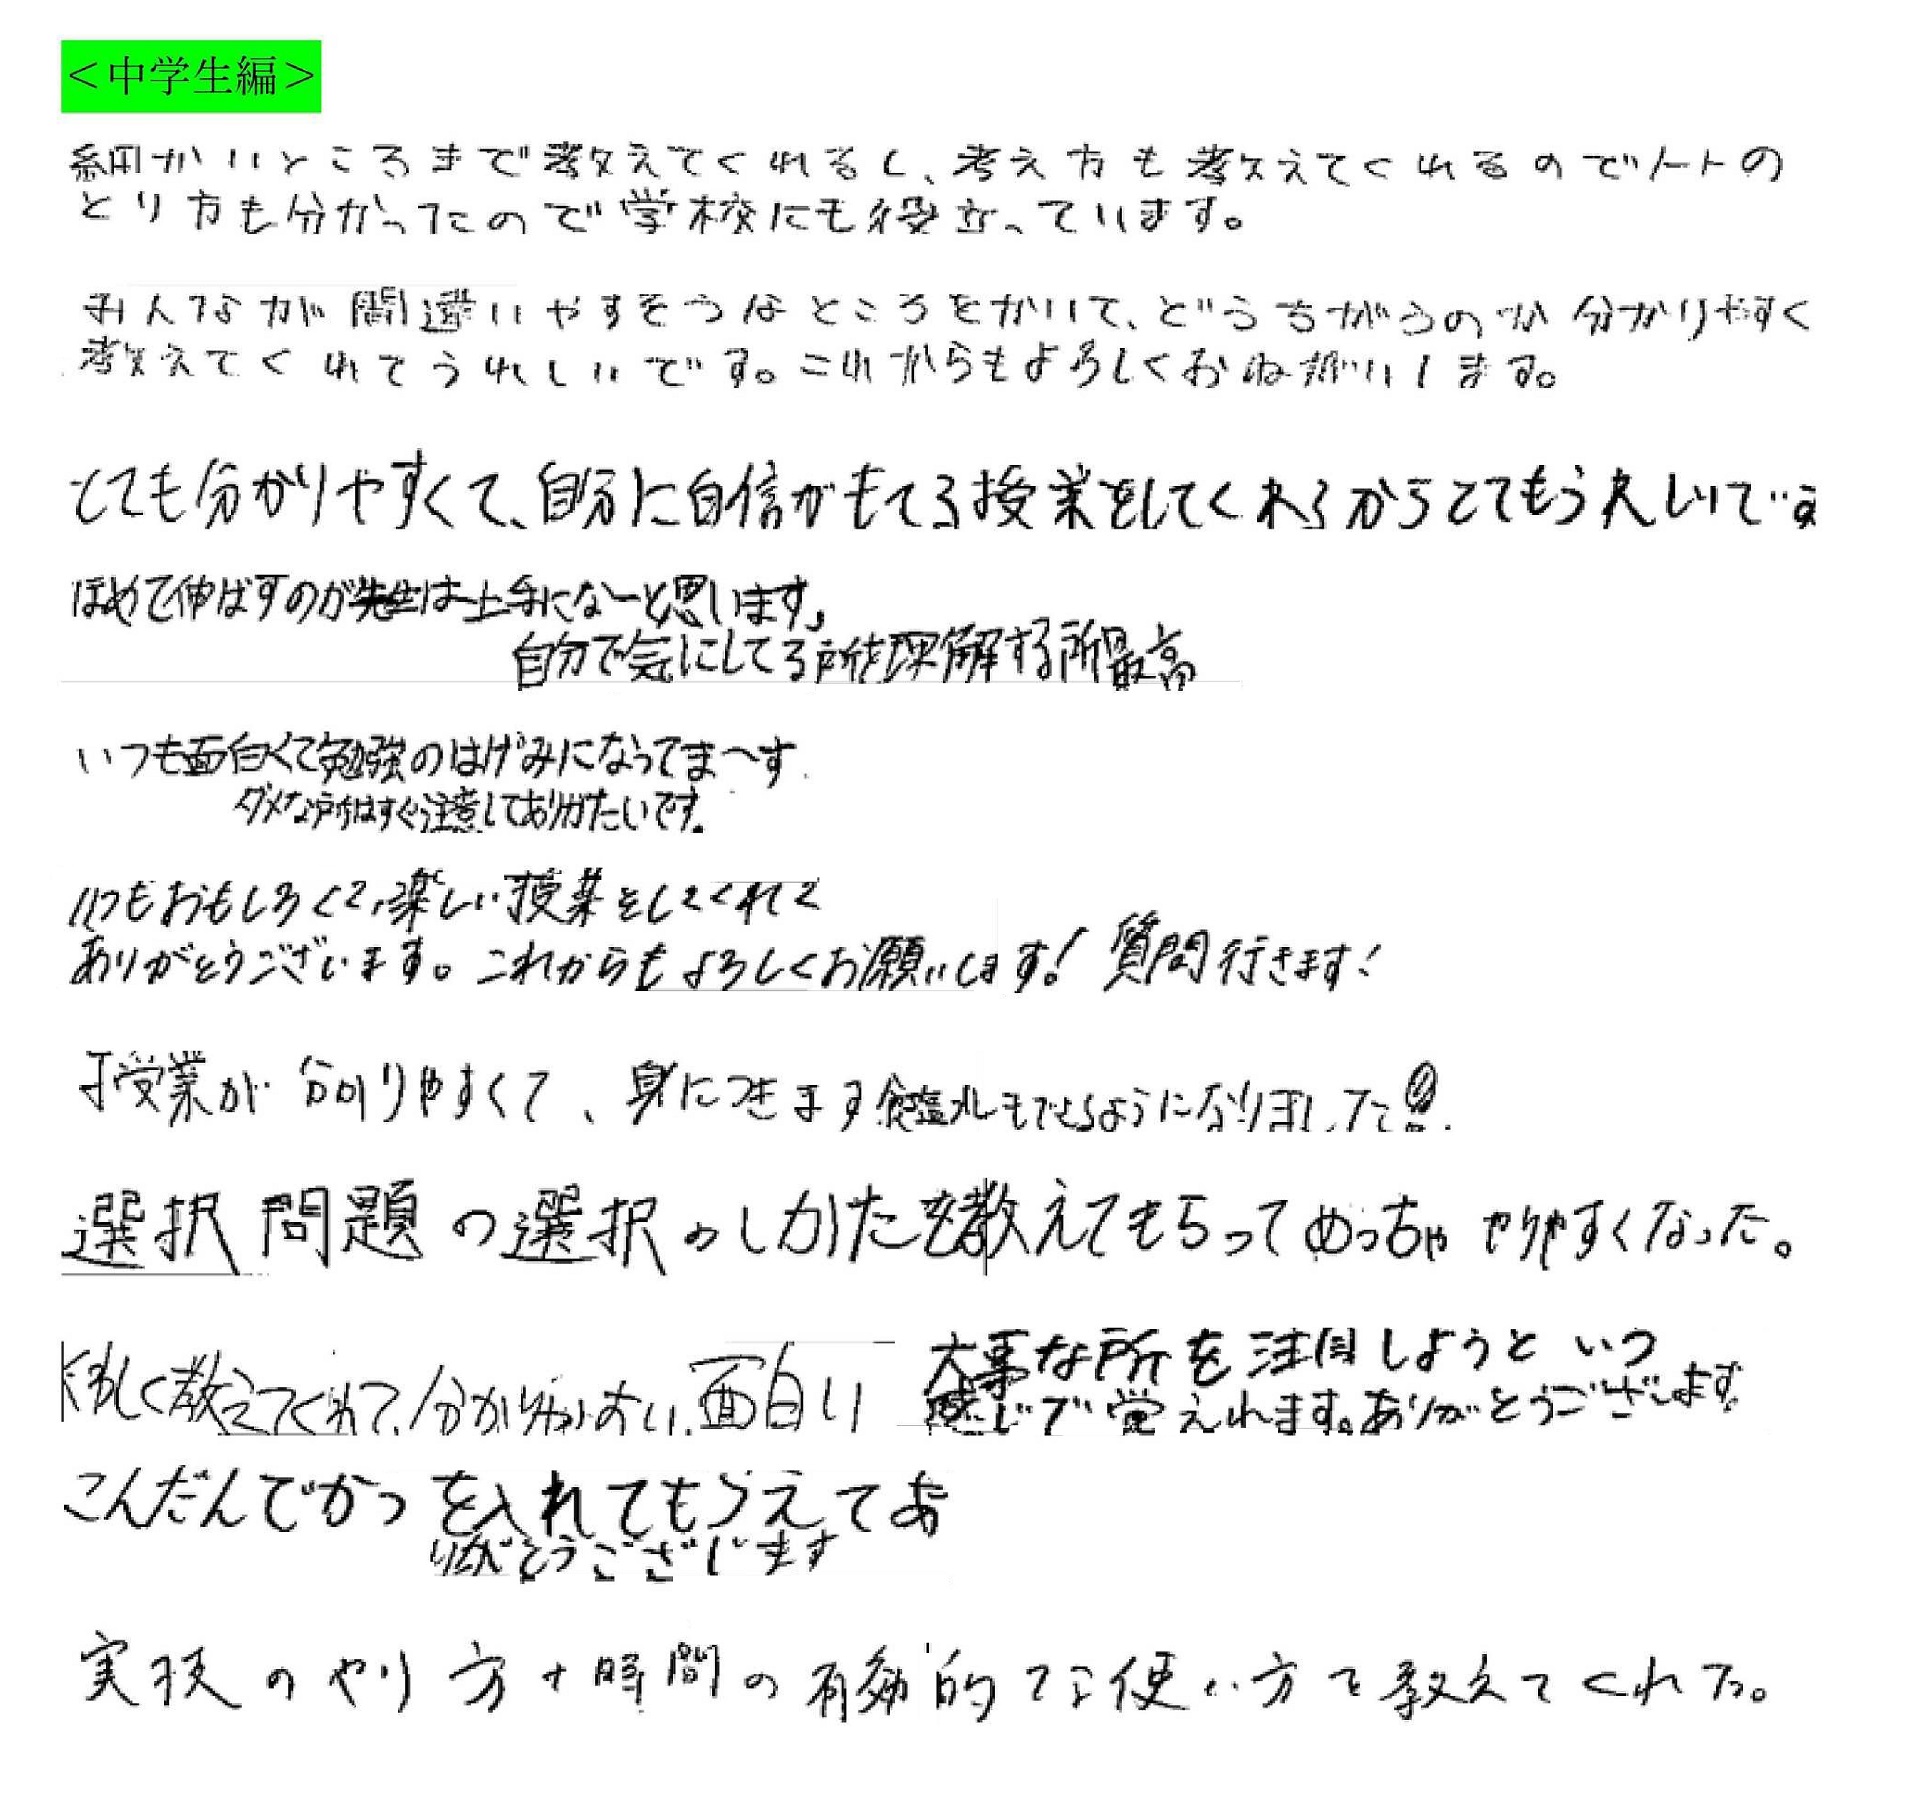 ＜中学生編＞
細かいところまで教えてくれるし、考え方も教えてくれるのでノートの
とり方も分かったので学校にも役立っています。
みんなが間違いやすそうなところをかいて、どうちがうのか分かりやすく
教えてくれてうれしいです。これからもよろしくおね願いします。
とても分かりやすくて、自分に自信がもてる授業をしてくれるからとてもうれしいです
ほめて伸ばすのが先生は上手になーと思います。
自分で気にしてる所を理解する所最高
いつも面白くて勉強のはげみになってまーす
ダメな所はすぐ注意してありがたいです。
いつもおもしろくて、楽しい授業をしてくれて
ありがとうございます。これからもよろしくお願いします! 質問行きます!
授業が分かりやすくて、身につきます もできるようになりました!!
選択問題の選択のしかたを教えてもらってめっちゃやりやすくなった。
しく教えてくれて、分かりやすい、面白い
大事な所を注目しようと いつ
感じで覚えれます。ありがとうございます
こんだんでかつを入れてもらえてあ
りがとうございます
実技のやり方+時間の有効的な使い方を教えてくれた。